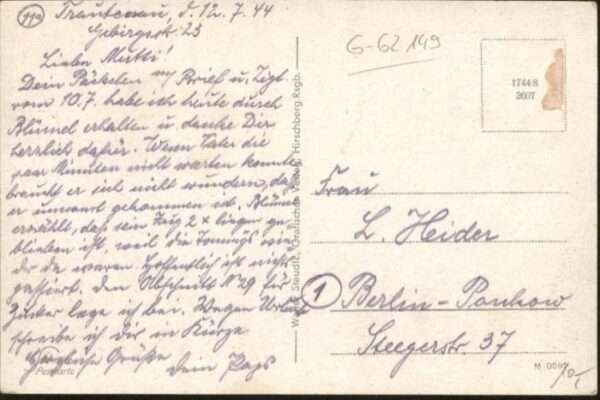 11a
Trautenau, d. 12.7.44
Gebirgsstr. 23
Liebe Mutti!
Dein Päckchen m/ Brief u. Zigt.
vom 10.7. habe ich heute durch
Blümel erhalten u. danke Dir
herzlich dafür. Wenn Vater die
paar Minuten nicht warten konnte,
braucht er sich nicht wundern, daß
er umsonst gekommen ist. Blümel
erzählt, daß sein Zug 2 x liegen ge-
blieben ist, weil die Tommys wie-
der da waren. Hoffentlich ist nichts
passiert. Den Abschnitt N 29 für
Zucker lege ich bei. Wegen Urlaub
schreibe ich Dir in Kürze
Herzliche Grüße
Dein Paps
Postkarte
Steudte, Grafischer Verlag, Hirschberg Rsgb.
G-62 149
17448
2607
Frau
L. Heider
1 Berlin-Pankow
Steegerstr. 37
M 0597